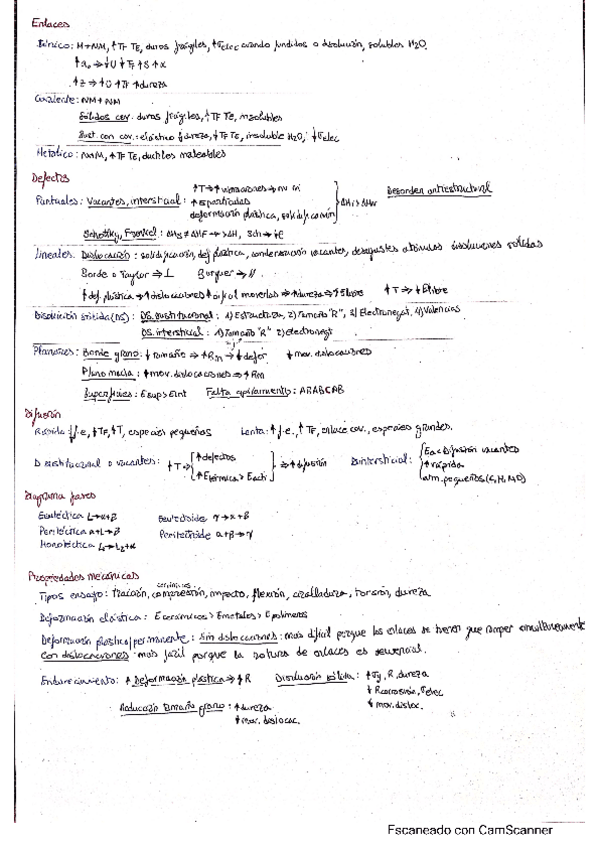 Enlaces
Iónico: M+NM, ↑TF TE, duros frágiles, ↑σelec cuando fundidos o disolución, solubles H2O.
↑a₀ → ↓U ↓TF ↑δ ↑α
↑z → ↑U ↑TF ↑dureza
Covalente: NM+NM
Sólidos cov: duros frágiles, ↑TF TE, insolubles
Sust. con cov: elástico ↓dureza, ↓TF TE, insoluble H2O, ↓σelec
Metálico: ↑TF TE, ductiles maleables
Defectos
↑T → ↑vibraciones →
Puntuales: Vacantes, intersticial: ↑ esporádicas
deformación plástica, solidificación
Desorden antiestructural
Schottky, Frenkel:
Lineales: Dislocación: solidificación, def plástica, condensación vacantes, desajustes atómicos disoluciones sólidas
Borde o Taylor → ⊥ Burguer → //
↑def. plástica → ↑dislocaciones ↑dificul moverlas → ↑dureza → ↑Elibre ↑T → ↓Elibre
Disolución sólida (DS): DS. sustitucional: 1) Estructura, 2) Tamaño "R", 3) Electronegat, 4) Valencias
DS. intersticial: 1) Tamaño "R" 2) electronegt
Planares: Borde grano: ↓tamaño → ↑Rm → ↓defor ↓mov. dislocaciones
Plano macla: ↑mov. dislocaciones → ↑Rm
Superficies: Esup>Eint Falta apilamiento: ABABCAB
Difusión
Rápida: ↓f.e, ↓TF, ↑T, especies pequeños Lenta: ↑f.e., ↑TF, enlace cov., especies grandes.
D sustitucional o vacantes: ↑T → ↑defectos
↑Etérmica > Eacti → ↑difusión
D intersticial: Ea<Difusión vacantes
↑rápida
atm. pequeños (C, H, N, O)
Diagrama fases
Eutéctica L→α+β Eutectoide γ→α+β
Peritéctica α+L→β Peritectoide α+β→γ
Monotéctica L1→L2+α
Propiedades mecánicas
cerámicos
Tipos ensayo: tracción, compresión, impacto, flexión, cizalladura, torsión, dureza
Deformación elástica: Ecerámicos > Emetales > Epolímeros
Deformación plástica/permanente: Sin dislocaciones: más difícil porque los enlaces se tienen que romper simultáneamente
Con dislocaciones: más fácil porque la rotura de enlaces es secuencial.
Endurecimiento: ↑ Deformación plástica → ↑R Disolución sólida: ↑σy, R, dureza
↓ Rcorrosión, σelec
↓ mov. disloc.
Reducción tamaño grano: ↑dureza
↓mov. dislocac.
Escaneado con CamScanner